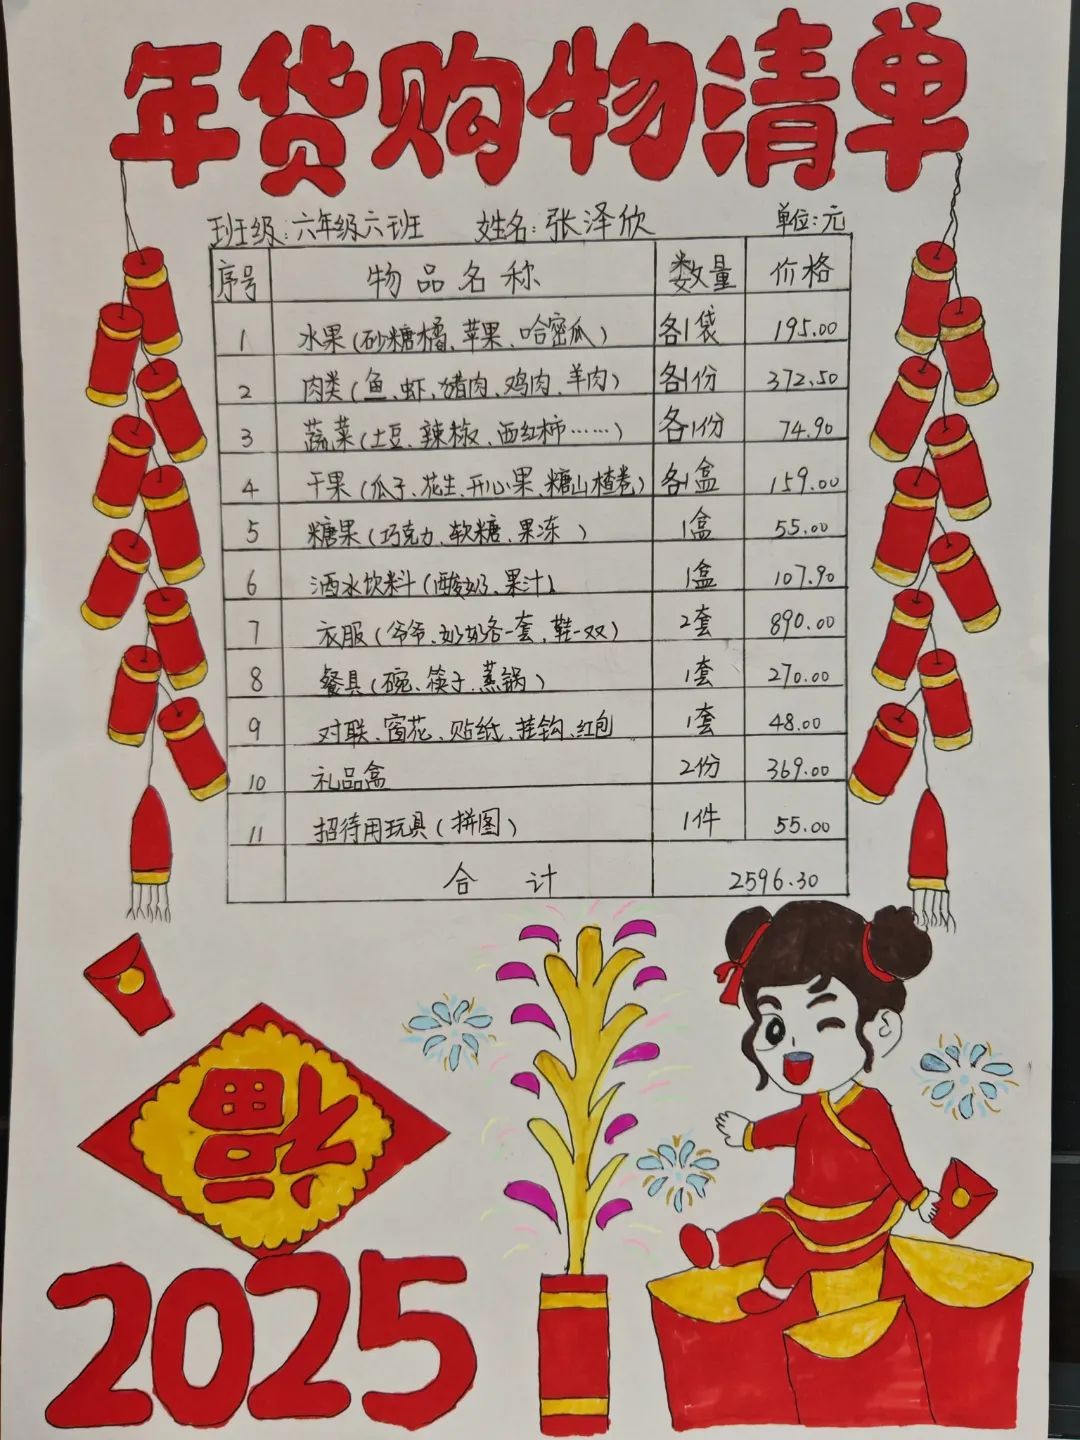 年货购物清单
班级:六年级六班 姓名:张泽欣 单位:元
序号 物品名称 数量 价格
1 水果(砂糖橘、苹果、哈密瓜) 各1袋 195.00
2 肉类(鱼、虾、猪肉、鸡肉、羊肉) 各1份 372.50
3 蔬菜(土豆、辣椒、西红柿……) 各1份 74.90
4 干果(瓜子、花生、开心果、糖山楂卷) 各1盒 159.00
5 糖果(巧克力、软糖、果冻) 1盒 55.00
6 酒水饮料(酸奶、果汁) 1盒 107.90
7 衣服(爷爷、奶奶各一套,鞋一双) 2套 890.00
8 餐具(碗、筷子、蒸锅) 1套 270.00
9 对联、窗花、贴纸、挂钩、红包 1套 48.00
10 礼品盒 2份 369.00
11 招待用玩具(拼图) 1件 55.00
合计 2596.30
福
2025